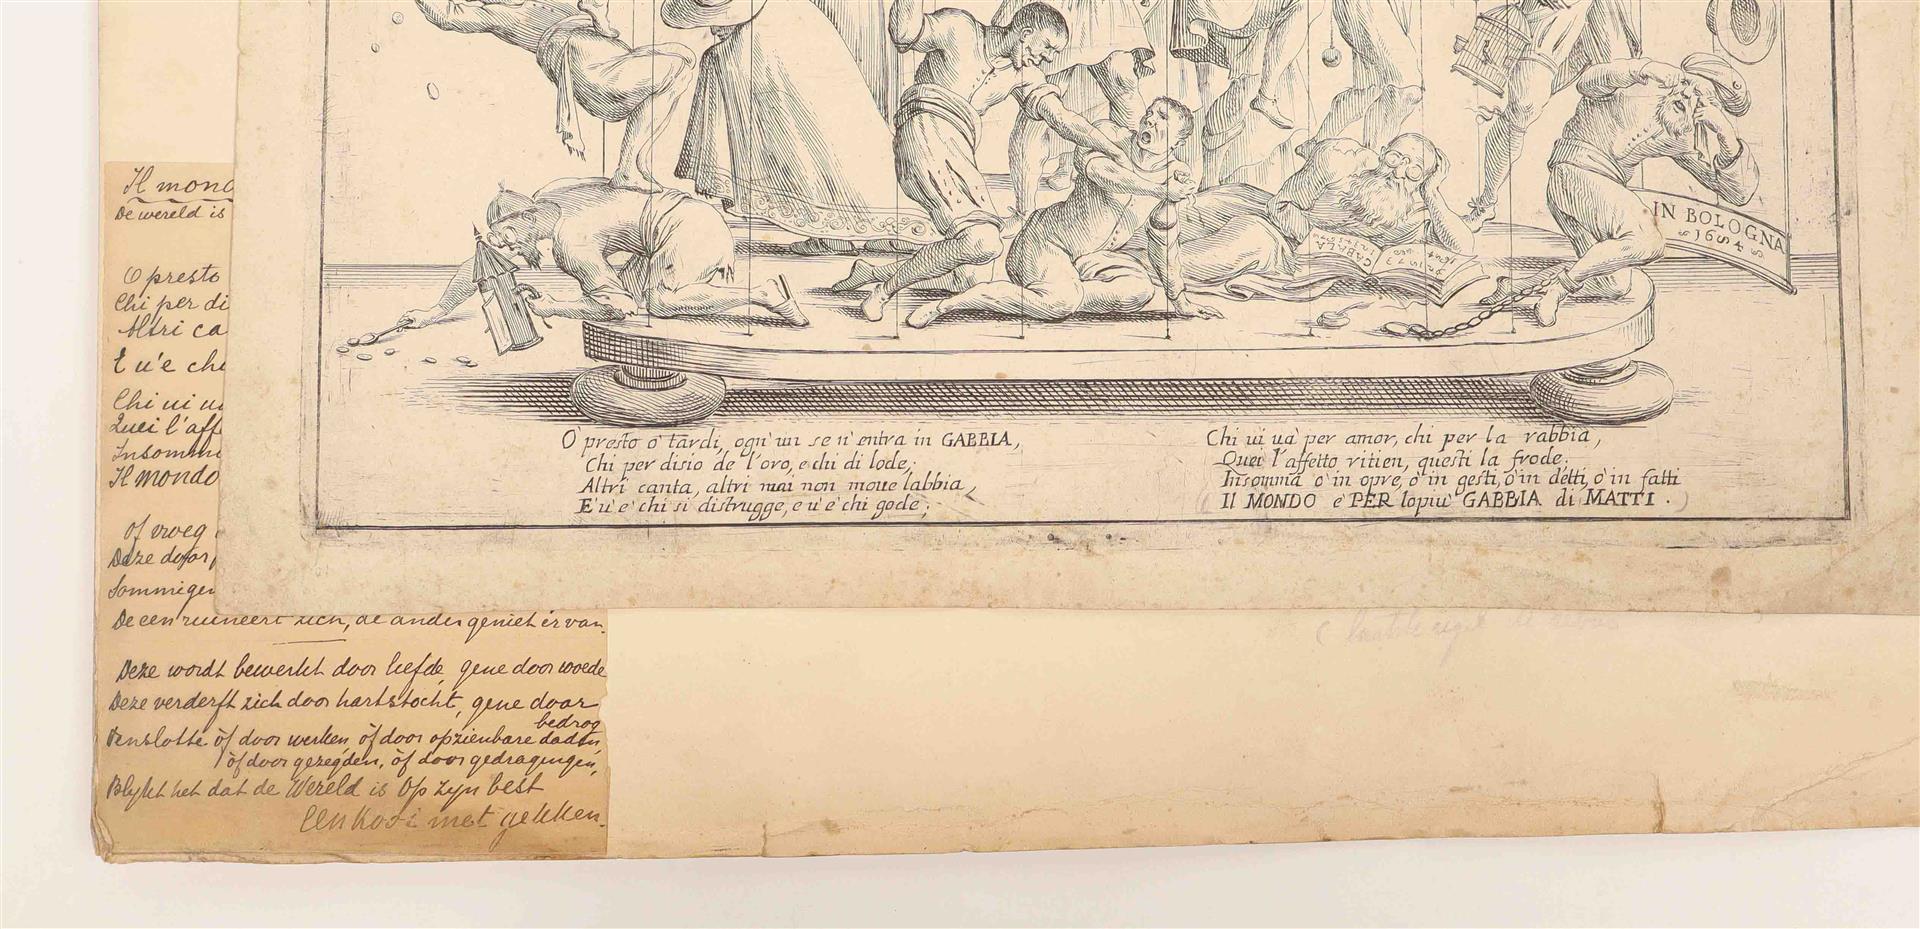 IN BOLOGNA
1684
CABALA
O presto ò tardi, ogn'un se n'entra in GABBIA,
Chi per disio de l'oro, e chi di lode;
Altri canta, altri mai non moue labbia,
E u'è chi si distrugge, e u'è chi gode;
Chi ui uà per amor, chi per la rabbia,
Quei l'affetto ritien, questi la frode;
Insomma ò in opre, ò in gesti, ò in detti, ò in fatti
Il MONDO è PER lopiù GABBIA di MATTI.
Il mond
De wereld is
O presto
Chi per di
Altri ca
E u'e chi
Chi ui u
Quei l'aff
Insomm
Il mondo
Of vroeg
Deze door
Sommigen
De een ruineert zich, de ander geniet er van.
Deze wordt bewerkt door liefde, gene door woede
Deze verderft zich door hartstocht, gene door
bedrog
Tenslotte òf door werken, òf door opzienbare daden,
òf door gezegden, òf door gedragingen,
Blykt het dat de Wereld is op zyn best
Een Kooi met gekken.